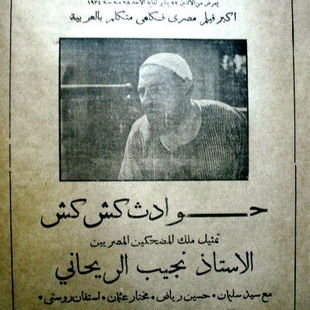 يعرض من الاثنين ٢٢ يناير لغاية الاحد ٢٨ منه سنة ١٩٣٤
اكبر فيلم مصرى فكاهى متكلم بالعربية
حوادث كش كش
تمثيل ملك المضحكين المصريين
الاستاذ نجيب الريحاني
مع سيد سليمان • حسين رياض • مختار عثمان • استفان روستى •